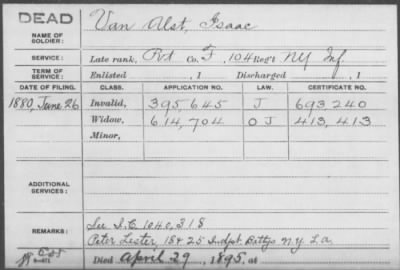 DEAD
NAME OF SOLDIER: Van Alst, Isaac
SERVICE: Late rank, Pvt Co. F, 104 Reg't NY Inf.
TERM OF SERVICE: Enlisted , 1 Discharged , 1
DATE OF FILING. CLASS. APPLICATION NO. LAW. CERTIFICATE NO.
1880, June 26 Invalid, 395645 J 693240
Widow, 614,704 OJ 413,413
Minor,
ADDITIONAL SERVICES:
REMARKS: See I.C. 1040,318
Peter Lester, 18 & 25 Indpt. Battys N.Y. L.A.
Died April 29, 1895, at